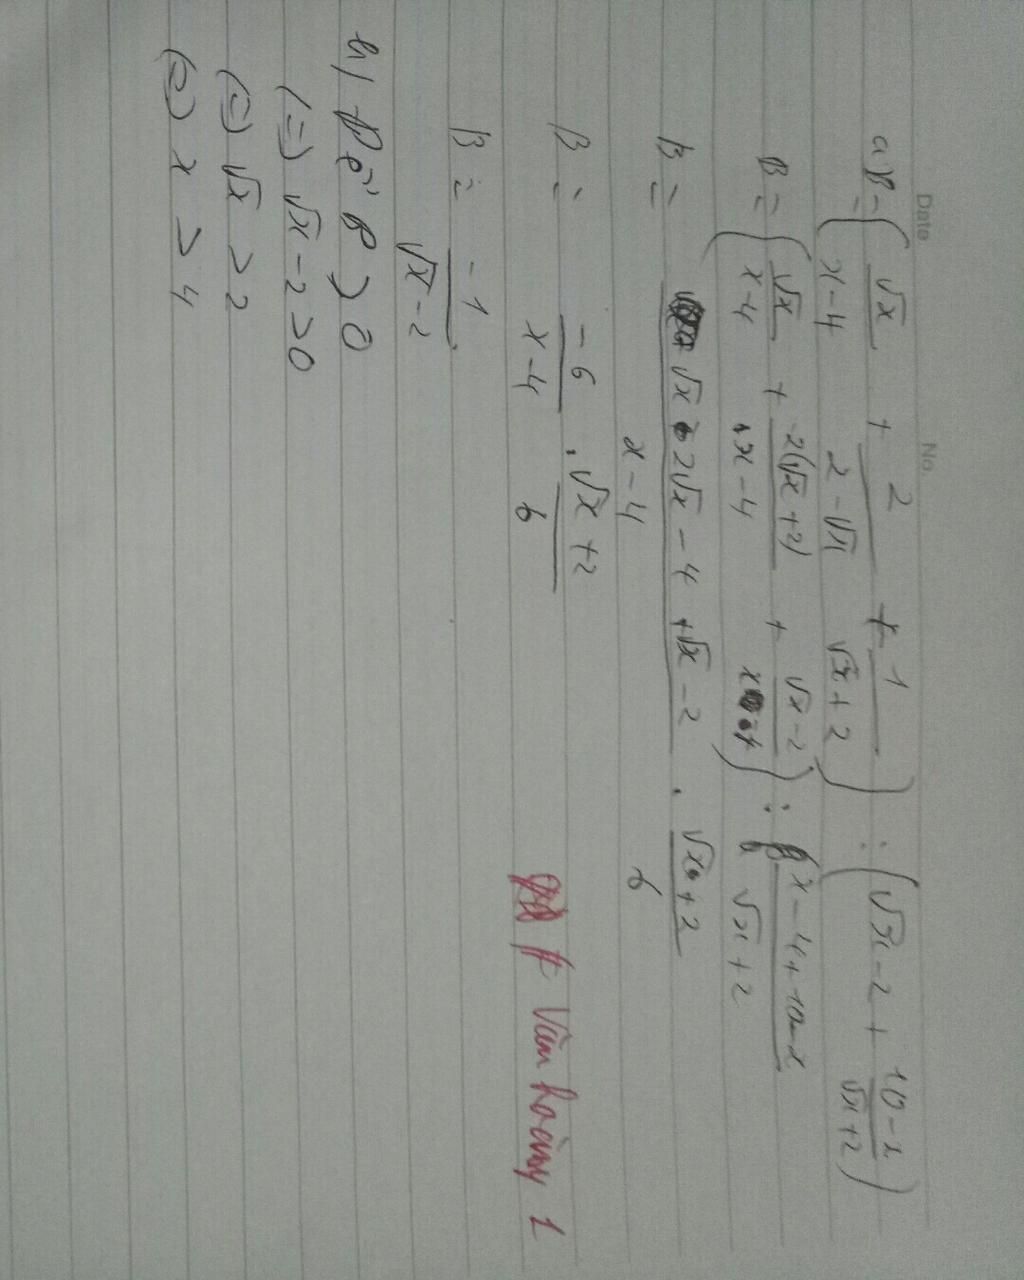 Date No.
a) B = ( √x / x - 4 + 2 / 2 - √x + 1 / √x + 2 ) : ( √x - 2 + 10 - x / √x + 2 )
B = ( √x / x - 4 + -2(√x + 2) / x - 4 + √x - 2 / x - 4 ) : x - 4 + 10 - x / √x + 2
B = √x - 2√x - 4 + √x - 2 / x - 4 . √x + 2 / 6
B = -6 / x - 4 . √x + 2 / 6
# Vân hoàng 1
B = -1 / √x - 2
b) Để B > 0
(=) √x - 2 > 0
(=) √x > 2
(=) x > 4